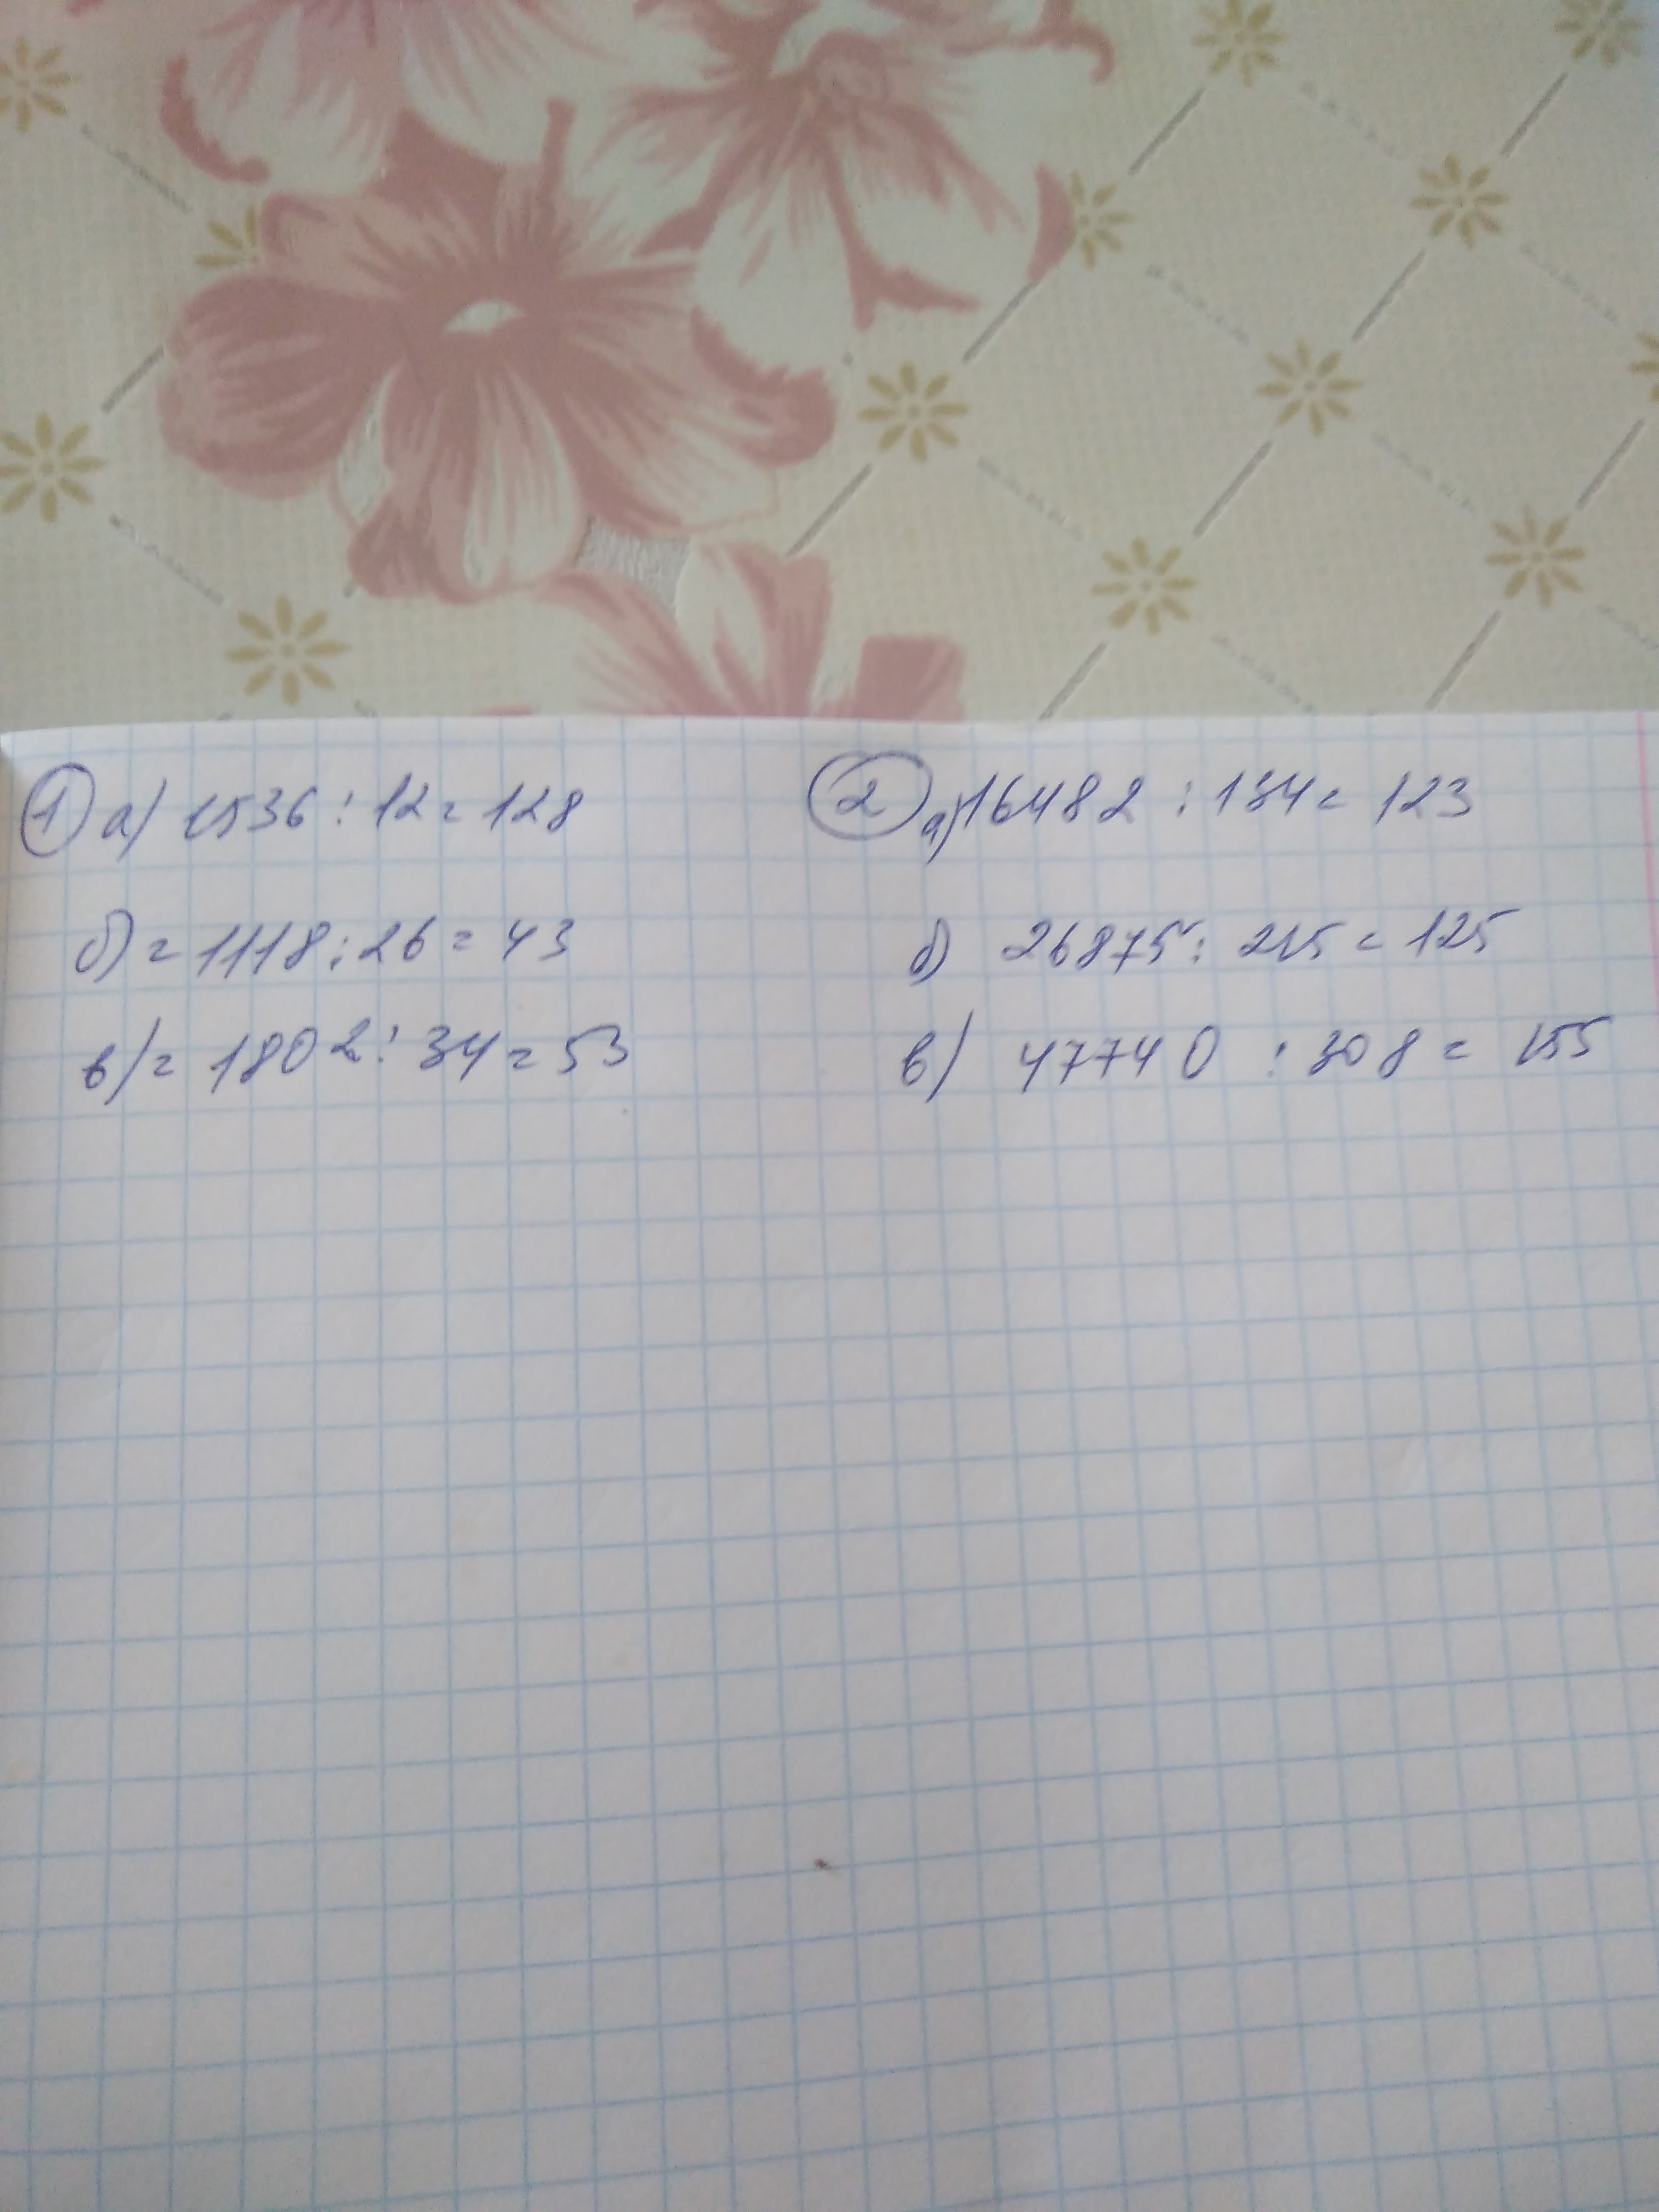 1 а) 1536 : 12 = 128
б) = 1118 : 26 = 43
в) = 1802 : 34 = 53
2 а) 16482 : 134 = 123
б) 26875 : 215 = 125
в) 47740 : 308 = 155